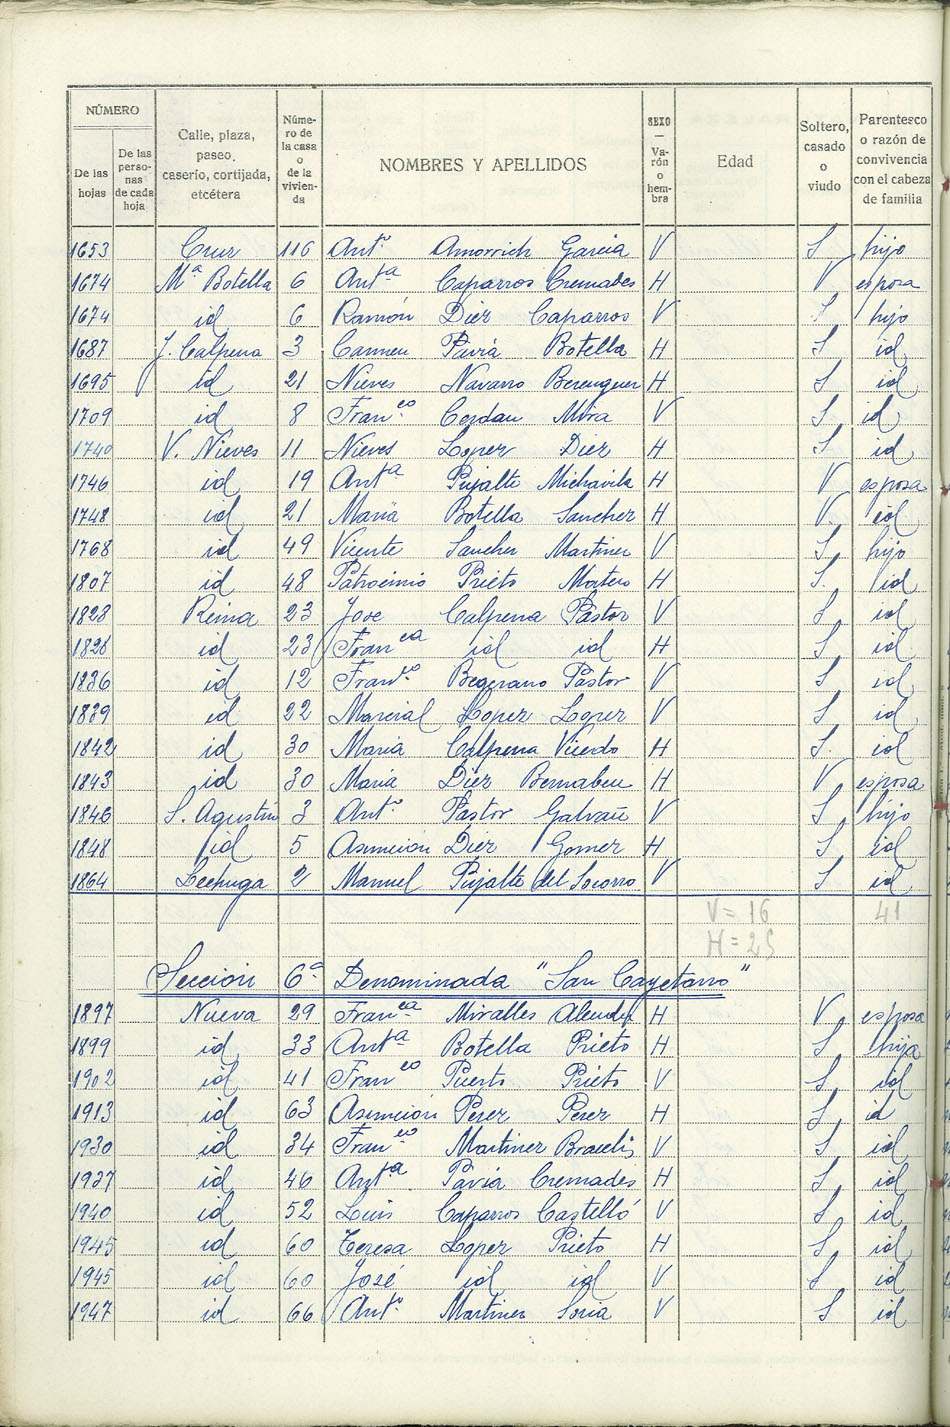 NÚMERO
De las hojas
De las personas de cada hoja
Calle, plaza, paseo, caserío, cortijada, etcétera
Número de la casa o de la vivienda
NOMBRES Y APELLIDOS
SEXO — Varón o hembra
Edad
Soltero, casado o viudo
Parentesco o razón de convivencia con el cabeza de familia
1653 Cruz 116 Antº Amorrich Garcia V S hijo
1674 Mª Botella 6 Antª Caparros Cremades H V esposa
1674 id 6 Ramón Diez Caparros V S hijo
1687 J. Calpena 3 Carmen Pavia Botella H S id
1695 id 21 Nieves Navarro Berenguer H S id
1709 id 8 Franco Cerdan Mira V S id
1740 V. Nieves 11 Nieves Lopez Diez H S id
1746 id 19 Antª Pujalte Michavila H V esposa
1748 id 21 Maria Botella Sanchez H V. id
1768 id 49 Vicente Sanchez Martinez V S hijo
1807 id 48 Patrocinio Prieto Montero H S. id
1828 Reina 23 Jose Calpena Pastor V S id
1828 id 23 Franca id id H S id
1836 id 12 Franco Begerano Pastor V S id
1839 id 22 Marcial Lopez Lopez V S id
1842 id 30 Maria Calpena Vicedo H S. id
1843 id 30 Maria Diez Bernabeu H V esposa
1846 S. Agustin 3 Antº Pastor Galvañ V S hijo
1848 id 5 Asuncion Diez Gomez H S id
1864 Lechuga 2 Manuel Pujalte del Socorro V S id
V = 16 41
H = 25
Sección 6ª Denominada "San Cayetano"
1897 Nueva 29 Franca Miralles H V esposa
1899 id 33 Antª Botella Prieto H S hija
1902 id 41 Franco Puerto Prieto V S id
1913 id 63 Asuncion Perez Perez H S id
1930 id 34 Franco Martinez V S id
1937 id 46 Antª Pavia Cremades H S id
1940 id 52 Luis Caparros Castelló V S id
1945 id 60 Teresa Lopez Prieto H S id
1945 id 60 José id id V S id
1947 id 66 Antº Martinez Soria V S id